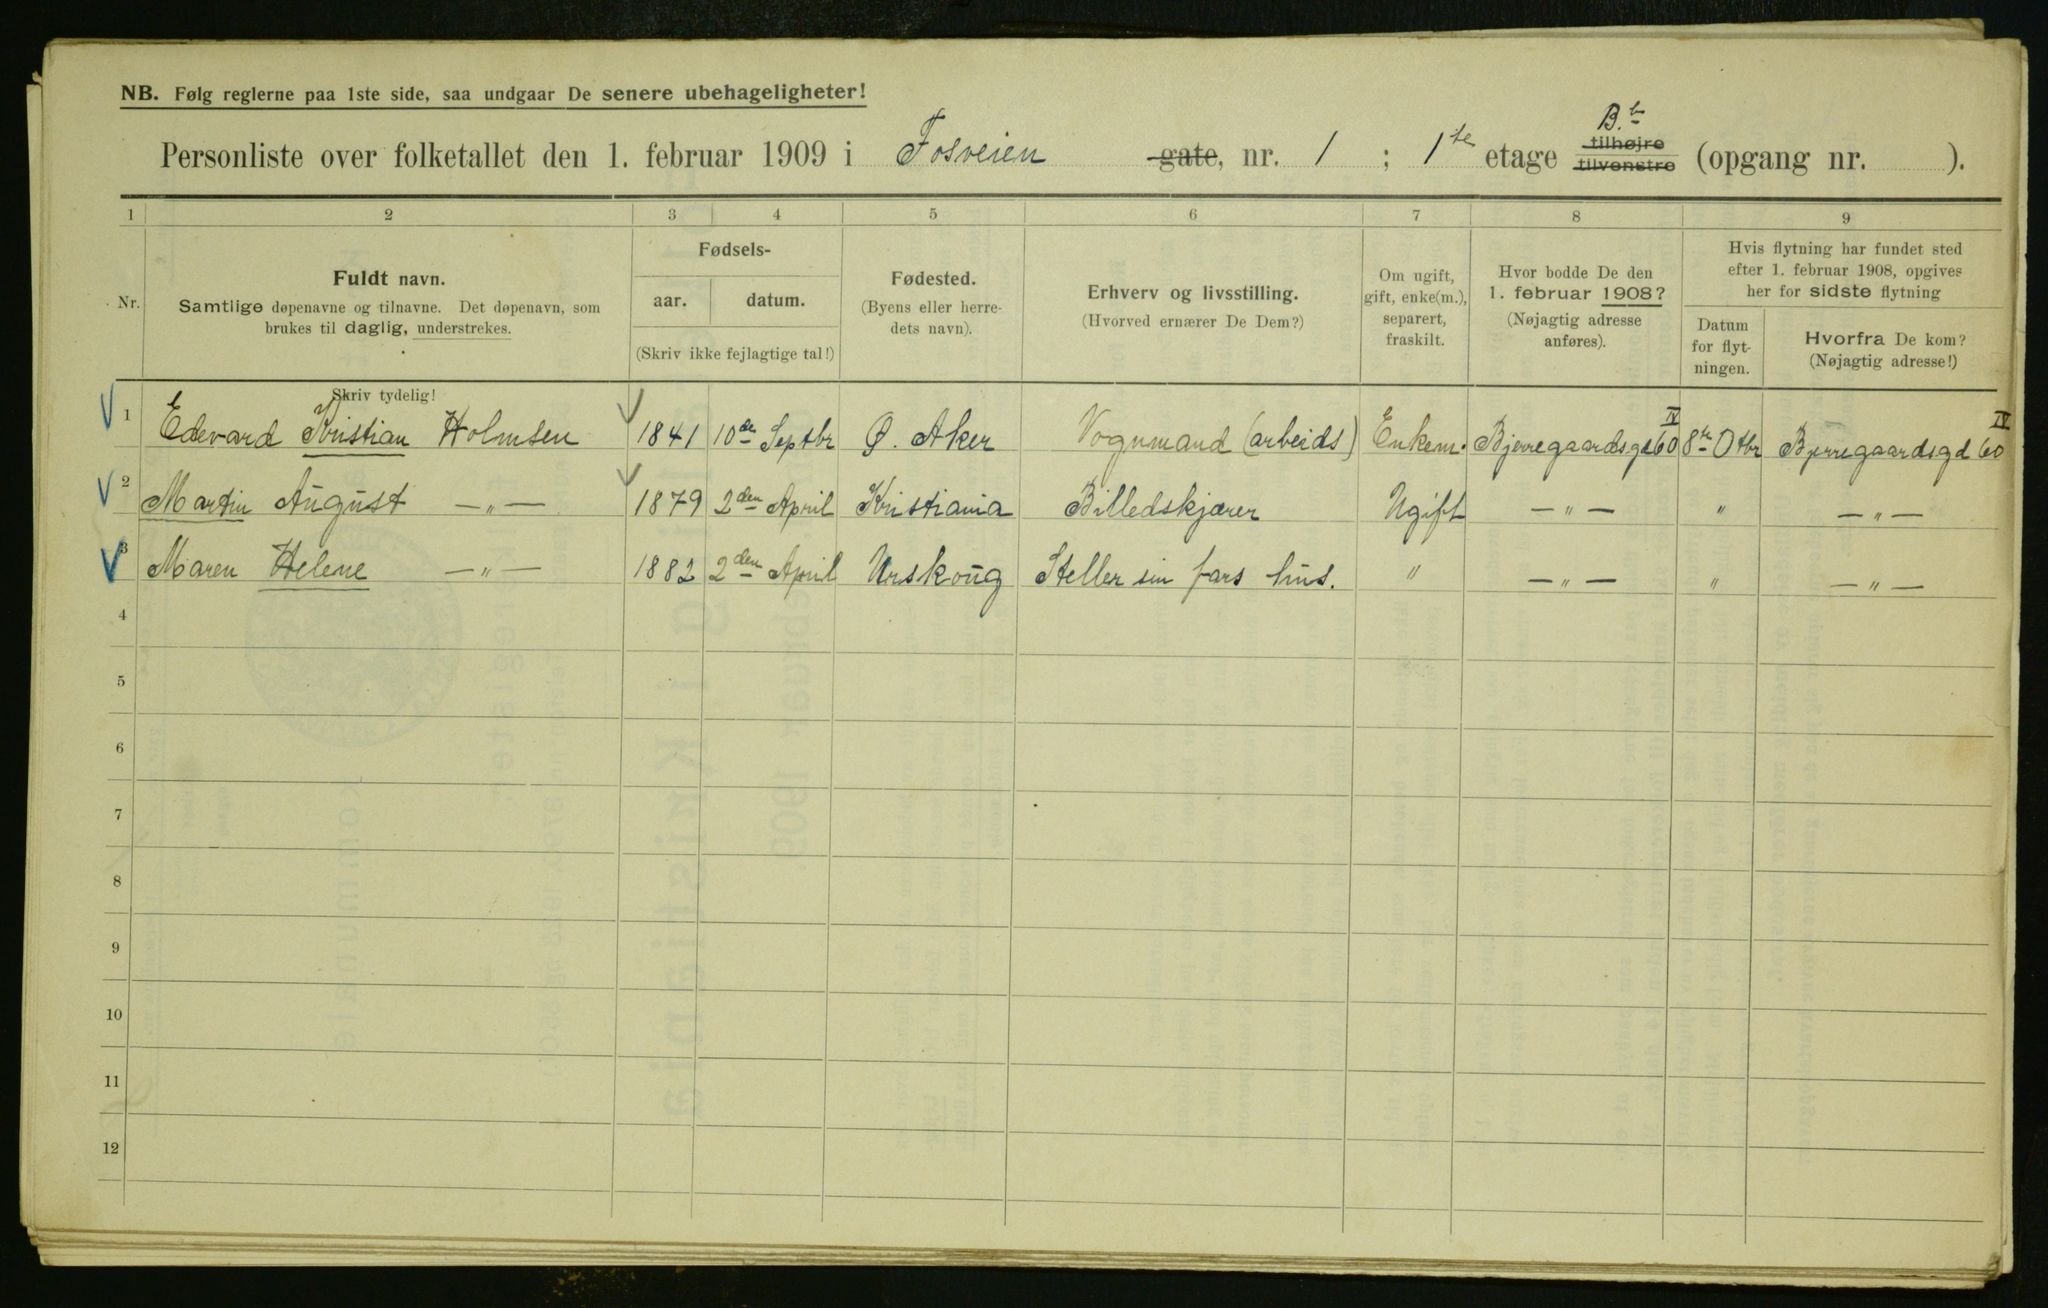 NB. Følg reglerne paa 1ste side, saa undgaar De senere ubehageligheter!
Personliste over folketallet den 1. februar 1909 i Fosveien gate, nr. 1 ; 1ste etage tilhøjre tilvenstre (opgang nr. ).
1 2 3 4 5 6 7 8 9
Nr.
Fuldt navn.
Samtlige døpenavne og tilnavne. Det døpenavn, som
brukes til daglig, understrekes.
Fødsels-
aar. datum.
(Skriv ikke fejlagtige tal!)
Fødested.
(Byens eller herre-
dets navn).
Erhverv og livsstilling.
(Hvorved ernærer De Dem?)
Om ugift,
gift, enke(m.),
separert,
fraskilt.
Hvor bodde De den
1. februar 1908?
(Nøjagtig adresse
anføres).
Hvis flytning har fundet sted
efter 1. februar 1908, opgives
her for sidste flytning
Datum
for flyt-
ningen.
Hvorfra De kom?
(Nøjagtig adresse!)
Skriv tydelig!
1 Edevard Kristian Holmsen 1841 10de Septbr Ø. Aker Vognmand (arbeids) Enkem. Bjerregaardsgd 60 IV 8de Otbr Bjerregaardsgd 60 IV
2 Martin August —„— 1879 2den April Kristiania Billedskjærer Ugift —„— „ —„—
3 Maren Helene —„— 1882 2den April Urskoug Steller sin fars hus. „ —„— „ —„—
4
5
6
7
8
9
10
11
12